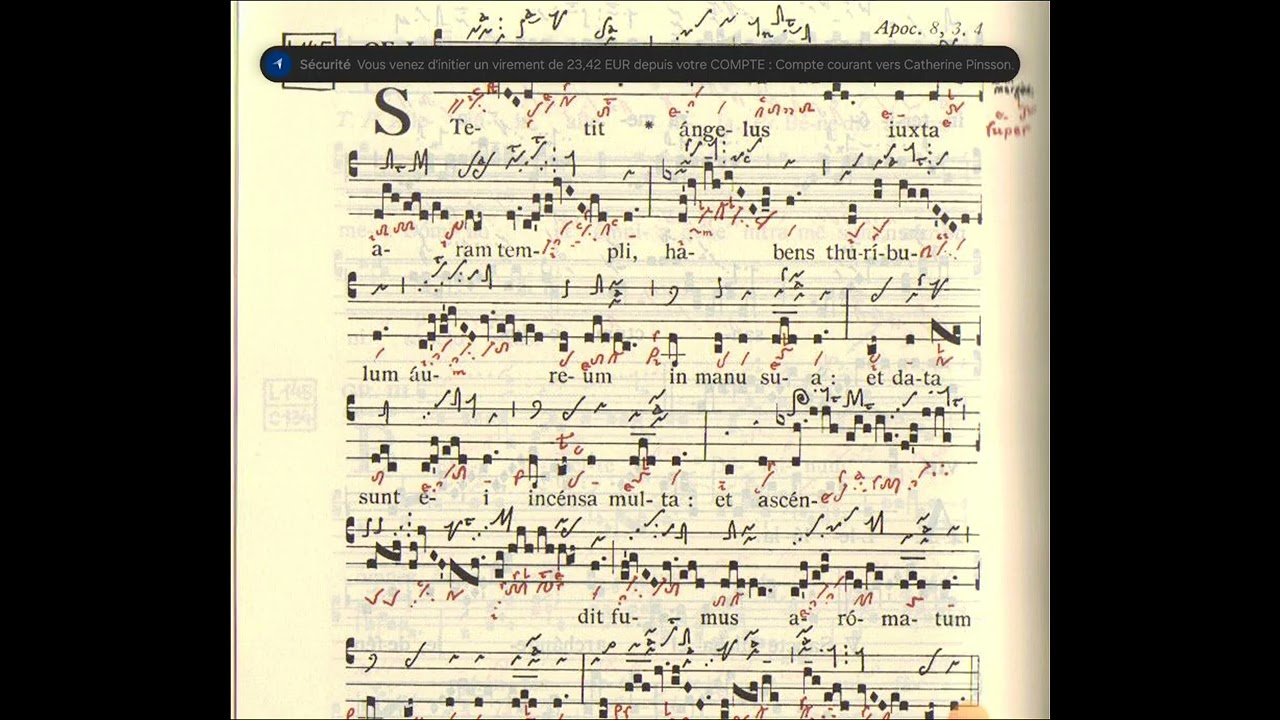 Apoc. 8, 3. 4
Sécurité Vous venez d'initier un virement de 23,42 EUR depuis votre COMPTE : Compte courant vers Catherine Pinsson.
STe- tit * ánge- lus iuxta
super
a- ram tem- pli, há- bens thu-rí-bu-
lum áu- re- um in manu su- a : et da-ta
L 145
C 134
sunt é- i incénsa mul- ta : et ascén-
dit fu- mus a- ró- ma- tum